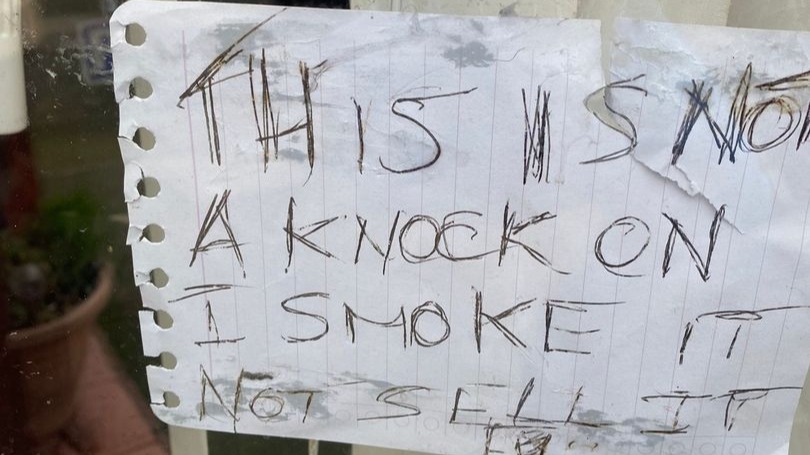 THIS IS NOT
A KNOCK ON
I SMOKE IT
NOT SELL IT